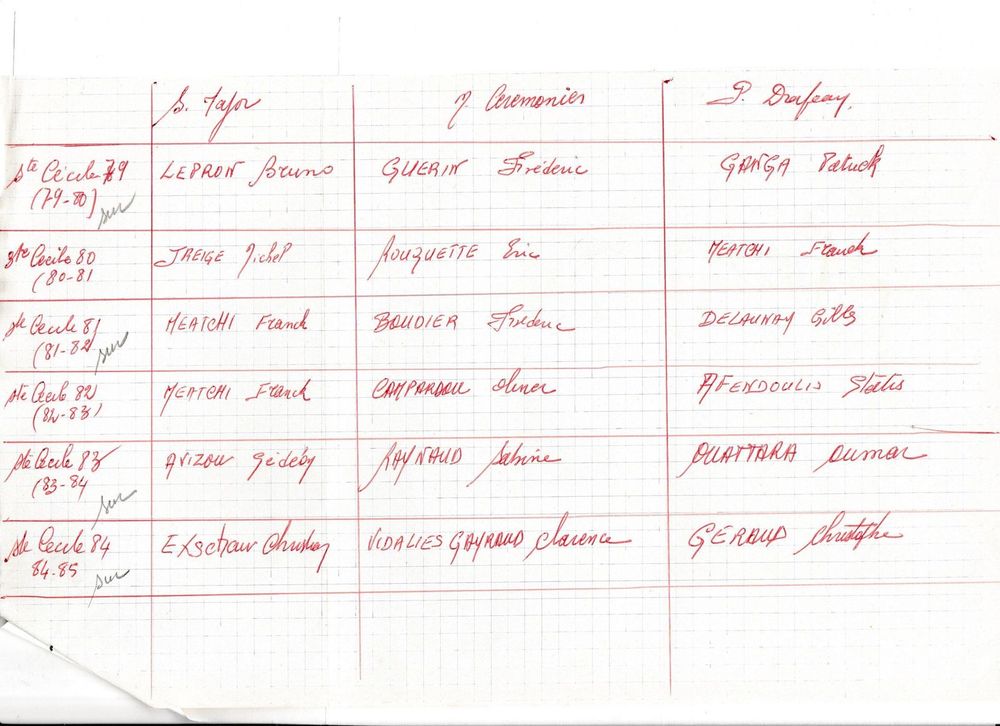 S. Major M Ceremonies P. Drapeau
Ste Cécile 79 LEPRON Bruno GUERIN Frédéric GANGA Patrick
(79-80) sur
Ste Cecile 80 TREIGE Michel ROUQUETTE Eric MEATCHI Franck
(80-81
Ste Cecile 81 MEATCHI Franck BOUDIER Frédéric DELAUNAY Gilles
(81-82 sur
Ste Cecile 82 MEATCHI Franck CAMPARDOU Olivier AFENDOULIS Statis
(82-83)
Ste Cecile 83 AVIZOU Gédéby RAYNAUD Sabine OUATTARA Oumar
(83-84 sur
Ste Cecile 84 VIDALIES GAYRAUD Clarence GERAUD Christophe
84.85 sur